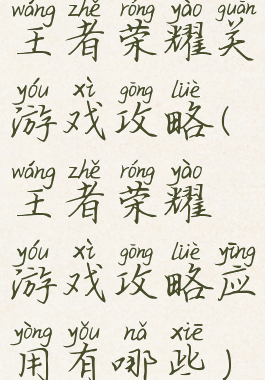 wáng zhě róng yào guān
王者荣耀关
yóu xì gōng lüè
游戏攻略(
wáng zhě róng yào
王者荣耀
yóu xì gōng lüè yīng
游戏攻略应
yòng yǒu nǎ xiē
用有哪些)